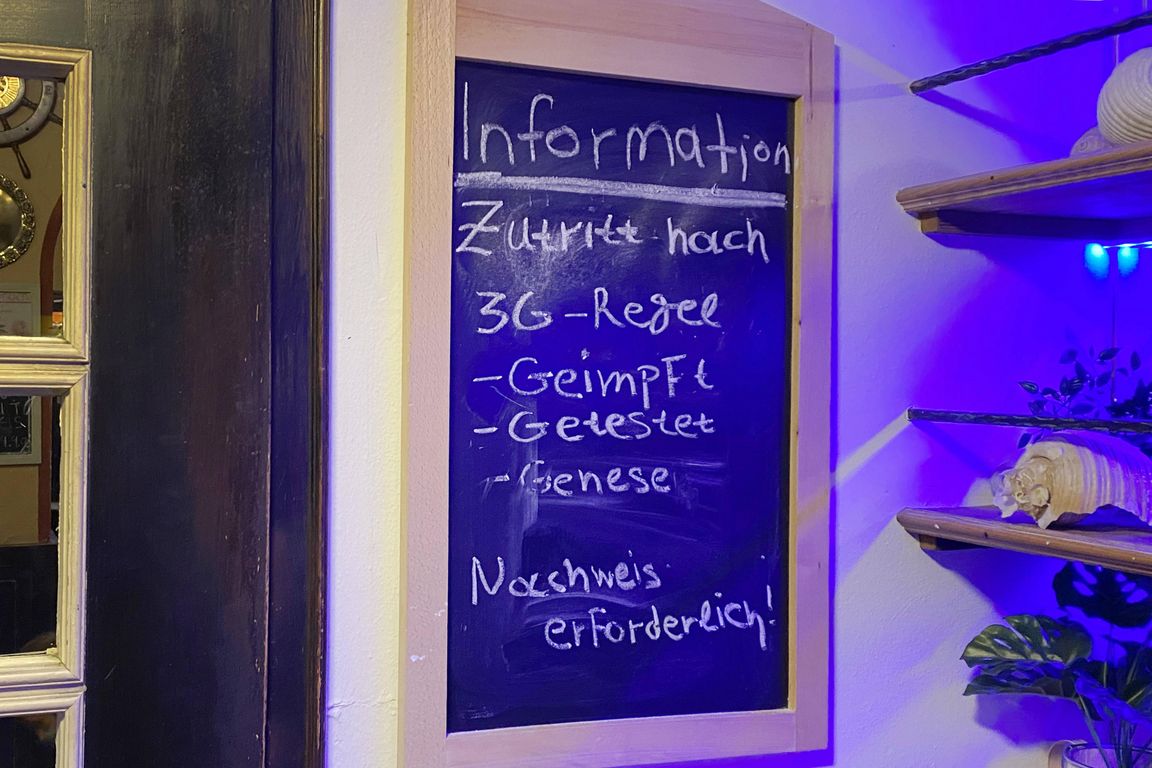 Information
Zutritt nach
3G-Regel
- Geimpft
- Getestet
- Genese
Nachweis
erforderlich!